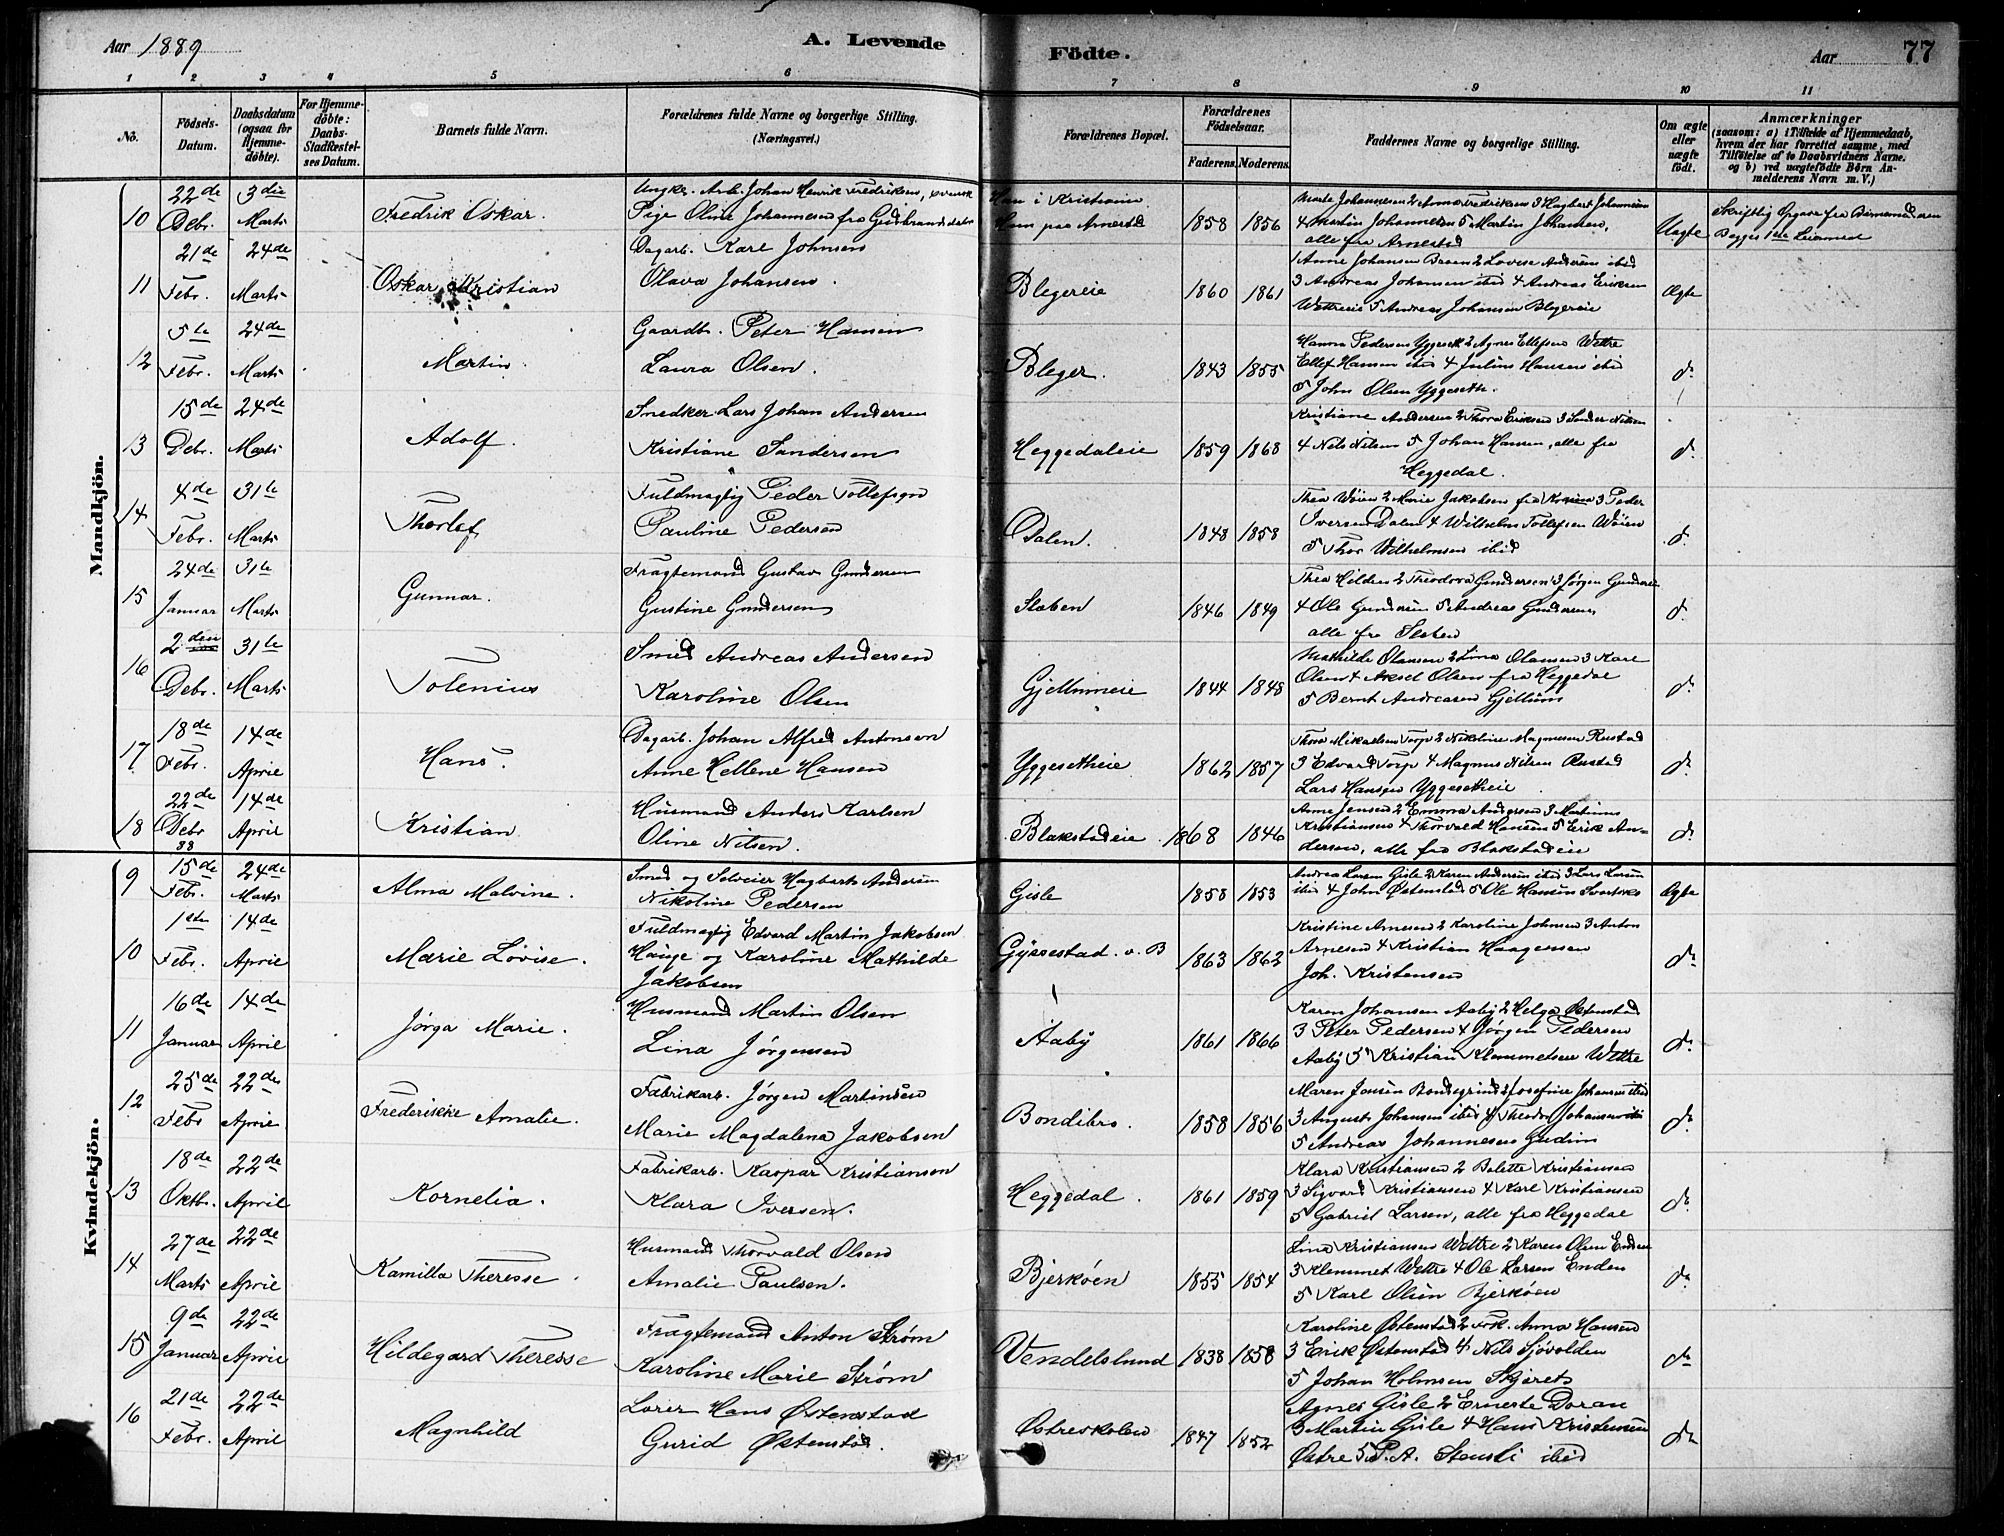 Aar 1889
A. Levende
Födte.
Aar
77
1 2 3 4 5 6 7 8 9 10 11
No.
Födsels-Datum.
Daabsdatum (ogsaa for Hjemmedöbte).
For Hjemmedöbte: Daabs-Stadfæstelses Datum.
Barnets fulde Navn.
Forældrenes fulde Navne og borgerlige Stilling.
(Næringsvei.)
Forældrenes Bopæl.
Forældrenes Födselsaar.
Faderens. Moderens.
Faddernes Navne og borgerlige Stilling.
Om ægte eller uægte födt.
Anmærkninger
(saasom: a) i Tilfælde af Hjemmedaab, hvem der har forrettet samme, med Tilföielse af to Daabsvidners Navne. og b) ved uægtefödte Börn Anmelderens Navn m. V.)
Mandkjön.
10 22de Debr. 3die Marts Fredrik Oskar.
Ungk. Arb. Johan Henrik Fredriksen, svensk
Pige Oline Johannesen fra Gudbrandsdalen
Han i Kristiania
Hun paa Arnestd
1858 1856
Marte Johannesen 2 Anna Fredriksen 3 Hagbart Johannesen
4 Martin Johannesen 5 Martin Johansen,
alle fra Arnestad
Uægte
Skriftlig Opgave fra Barnemoderen
Begges 1ste Leiermaal
11 21de Febr. 24de Marts Oskar Kristian
Dagarb. Karl Johnsen
Olava Johansen.
Blegereie 1860 1861
1 Anne Johansen Braen 2 Lovise Andersen ibid
3 Andreas Johansen ibid 4 Andreas Eriksen
Wettreeie 5 Andreas Johansen Blegereie
Ægte
12 5te Febr. 24de Marts Martin.
Gaardbr. Peter Hansen
Laura Olsen.
Bleger. 1843 1855
Hanna Pedersen Yggeseth 2 Agnes Ellefsen Wettre
Ellef Hansen ibid 4 Julius Hansen ibid
5 John Olsen Yggeseth.
do
13 15de Debr. 24de Marts Adolf.
Snedker Lars Johan Andersen
Kristiane Sandersen
Heggedaleie 1859 1868
Kristiane Andersen 2 Thora Eriksen 3 Sander Nilsen
4 Nils Nilsen 5 Johan Hansen, alle fra
Heggedal.
do
14 4de Febr. 31te Marts Thorlef
Fuldmægtig Peder Tollefsen
Pauline Pedersen
Dalen. 1848 1858
Thea Wøien 2 Marie Jakobsen fra 3 Peder
Iversen Dalen 4 Wilhelm Tollefsen Wøien
5 Thor Wilhelmsen ibid
do
15 24de Januar 31te Marts Gunnar.
Fragtemand Gustav Gundersen
Gustine Gundersen
Slaben 1846 1849
Thea Hilden 2 Theodora Gundersen 3 Jørgen Gundersen
4 Ole Gundersen 5 Andreas Gundersen,
alle fra Slaben
do
16 2den Debr. 31te Marts Tolenius
Smed Andreas Andersen
Karoline Olsen
Gjellumeie 1844 1848
Mathilde Olansen 2 Lina Olansen 3 Karl
Olsen 4 Aksel Olsen fra Heggedal
5 Bernt Andreasen Gjellum
do
17 18de Febr. 14de April Hans.
Dagarb. Johan Alfred Antonsen
Anne Hellene Hansen
Yggesetheie 1862 1857
Thora Mikaelsen Torp 2 Nikoline Magnusen Rustad
3 Edvard Torp 4 Magnus Nilsen Rustad
Lars Hansen Yggesetheie
do
18 22de Debr 88 14de April Kristian
Husmand Anders Karlsen
Oline Nilsen.
Blakstadeie. 1868 1846
Anne Jensen 2 Emma Andersen 3 Martinus
Kristiansen 4 Thorvald Hansen 5 Erik An-
dersen, alle fra Blakstadeie
do
Kvindekjön.
9 15de Febr. 24de Marts Alma Malvine.
Smed og Selveier Hagbart Andersen
Nikoline Pedersen
Gisle 1858 1853
Andrea Larsen Gisle 2 Karen Andersen ibid 3 Lars Larsen
ibid 4 John Østenstad 5 Ole Hansen
Ægte
10 1ste Febr. 14de April Marie Lovise.
Fuldmægtig Edvard Martin Jakobsen
Hauge og Karoline Mathilde
Jakobsen
Gyssestad. v. B 1863 1862
Kristine Arnesen 2 Karoline Johnsen 3 Anton
Arnesen 4 Kristian Haagensen
Joh. Kristensen
do
11 16de Januar 14de April Jørga Marie.
Husmand Martin Olsen
Lina Jørgensen
Aaby 1861 1866
Karen Johansen Aaby 2 Helga Østenstad
3 Peter Pedersen 4 Jørgen Pedersen
Aaby 5 Kristian Klemmetsen Wettre
do
12 25de Febr 22de April Frederikke Amalie.
Fabrikarb. Jørgen Martinsen
Marie Magdalena Jakobsen
Bondibro. 1858 1856
Maren Jensen Bondegrind 2 Josefine Johansen ibid
3 August Johansen ibid 4 Theodor Johansen ibid
5 Andreas Johannesen Gudim
do
13 18de Oktbr. 22de April Kornelia.
Fabrikarb. Kaspar Kristiansen
Klara Iversen.
Heggedal. 1861 1859
Klara Kristiansen 2 Bolette Kristiansen
3 Sigvard Kristiansen 4 Karl Kristiansen
5 Gabriel Larsen, alle fra Heggedal
do
14 27de Marts 22de April Kamilla Theresse.
Husmand Thorvald Olsen
Amalie Paulsen.
Bjerkøen 1855 1854
Lina Kristiansen Wettre 2 Karen Olsen Enden
3 Klemmet Wettre 4 Ole Larsen Enden
5 Karl Olsen Bjerkøen
do
15 9de Januar 22de April Hildegard Theresse
Fragtemand Anton Strøm
Karoline Marie Strøm
Vendelslund 1838 1858
Karoline Østenstad 2 Frk. Anna Hansen
3 Erik Østenstad 4 Nils Sjøvolden
5 Johan Holmsen Skjæret
do
16 21de Febr. 22de April Magnhild
Lærer Hans Østenstad
Gurid Østenstad.
Østreskolen 1847 1852
Agnes Gisle 2 Erneste Doran
3 Martin Gisle 4 Hans Kristensen
Østre 5 P. A. Stensli ibid
do